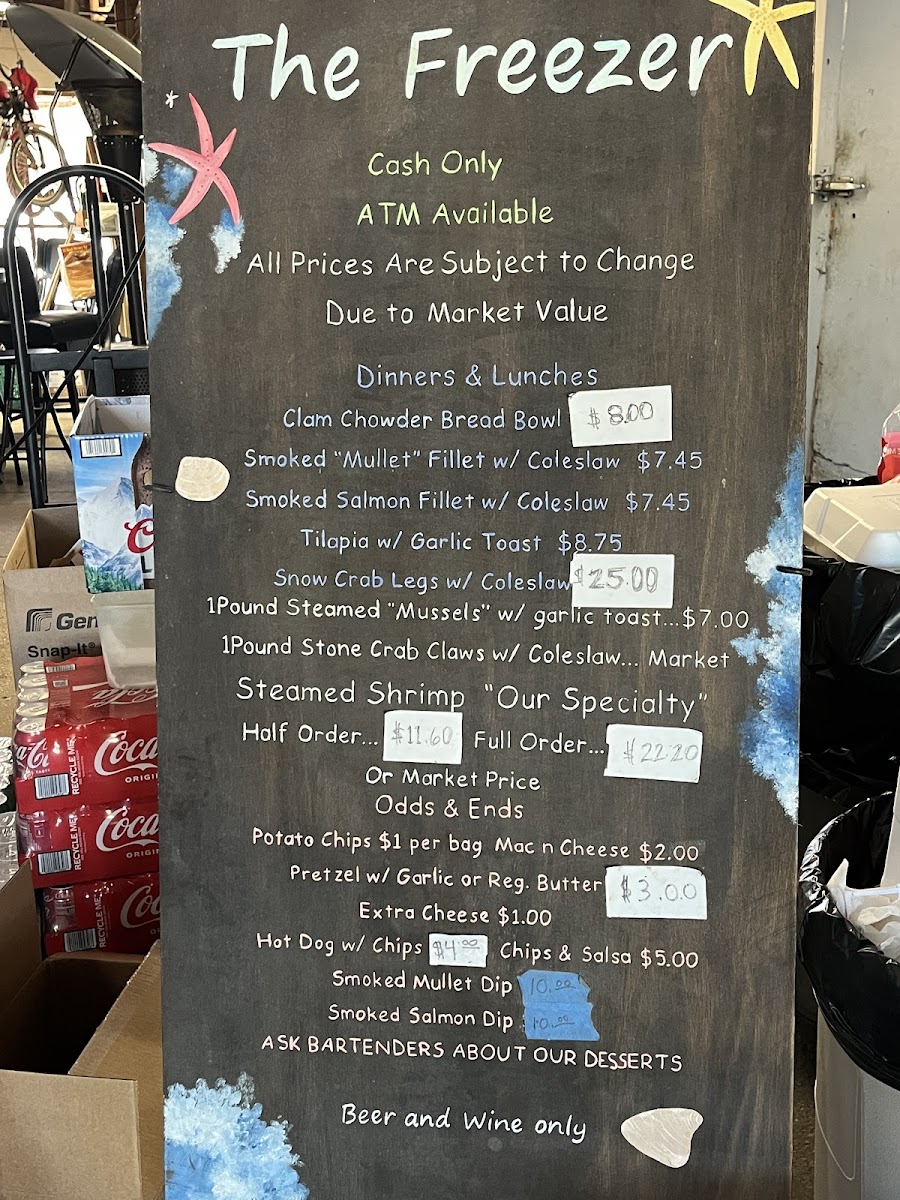 The Freezer
Cash Only
ATM Available
All Prices Are Subject to Change
Due to Market Value
Dinners & Lunches
Clam Chowder Bread Bowl $8.00
Smoked "Mullet" Fillet w/ Coleslaw $7.45
Smoked Salmon Fillet w/ Coleslaw $7.45
Tilapia w/ Garlic Toast $8.75
Snow Crab Legs w/ Coleslaw $25.00
1Pound Steamed "Mussels" w/ garlic toast...$7.00
1Pound Stone Crab Claws w/ Coleslaw... Market
Steamed Shrimp "Our Specialty"
Half Order... $11.60 Full Order... $22.20
Or Market Price
Odds & Ends
Potato Chips $1 per bag Mac n Cheese $2.00
Pretzel w/ Garlic or Reg. Butter $3.00
Extra Cheese $1.00
Hot Dog w/ Chips $4.00 Chips & Salsa $5.00
Smoked Mullet Dip 10.00
Smoked Salmon Dip 10.00
ASK BARTENDERS ABOUT OUR DESSERTS
Beer and Wine only
Gen
Snap-It®
Coca
ORIGI
RECYCLE ME
Coca
ORIGI
RECYCLE ME
Coca
RECYCLE ME